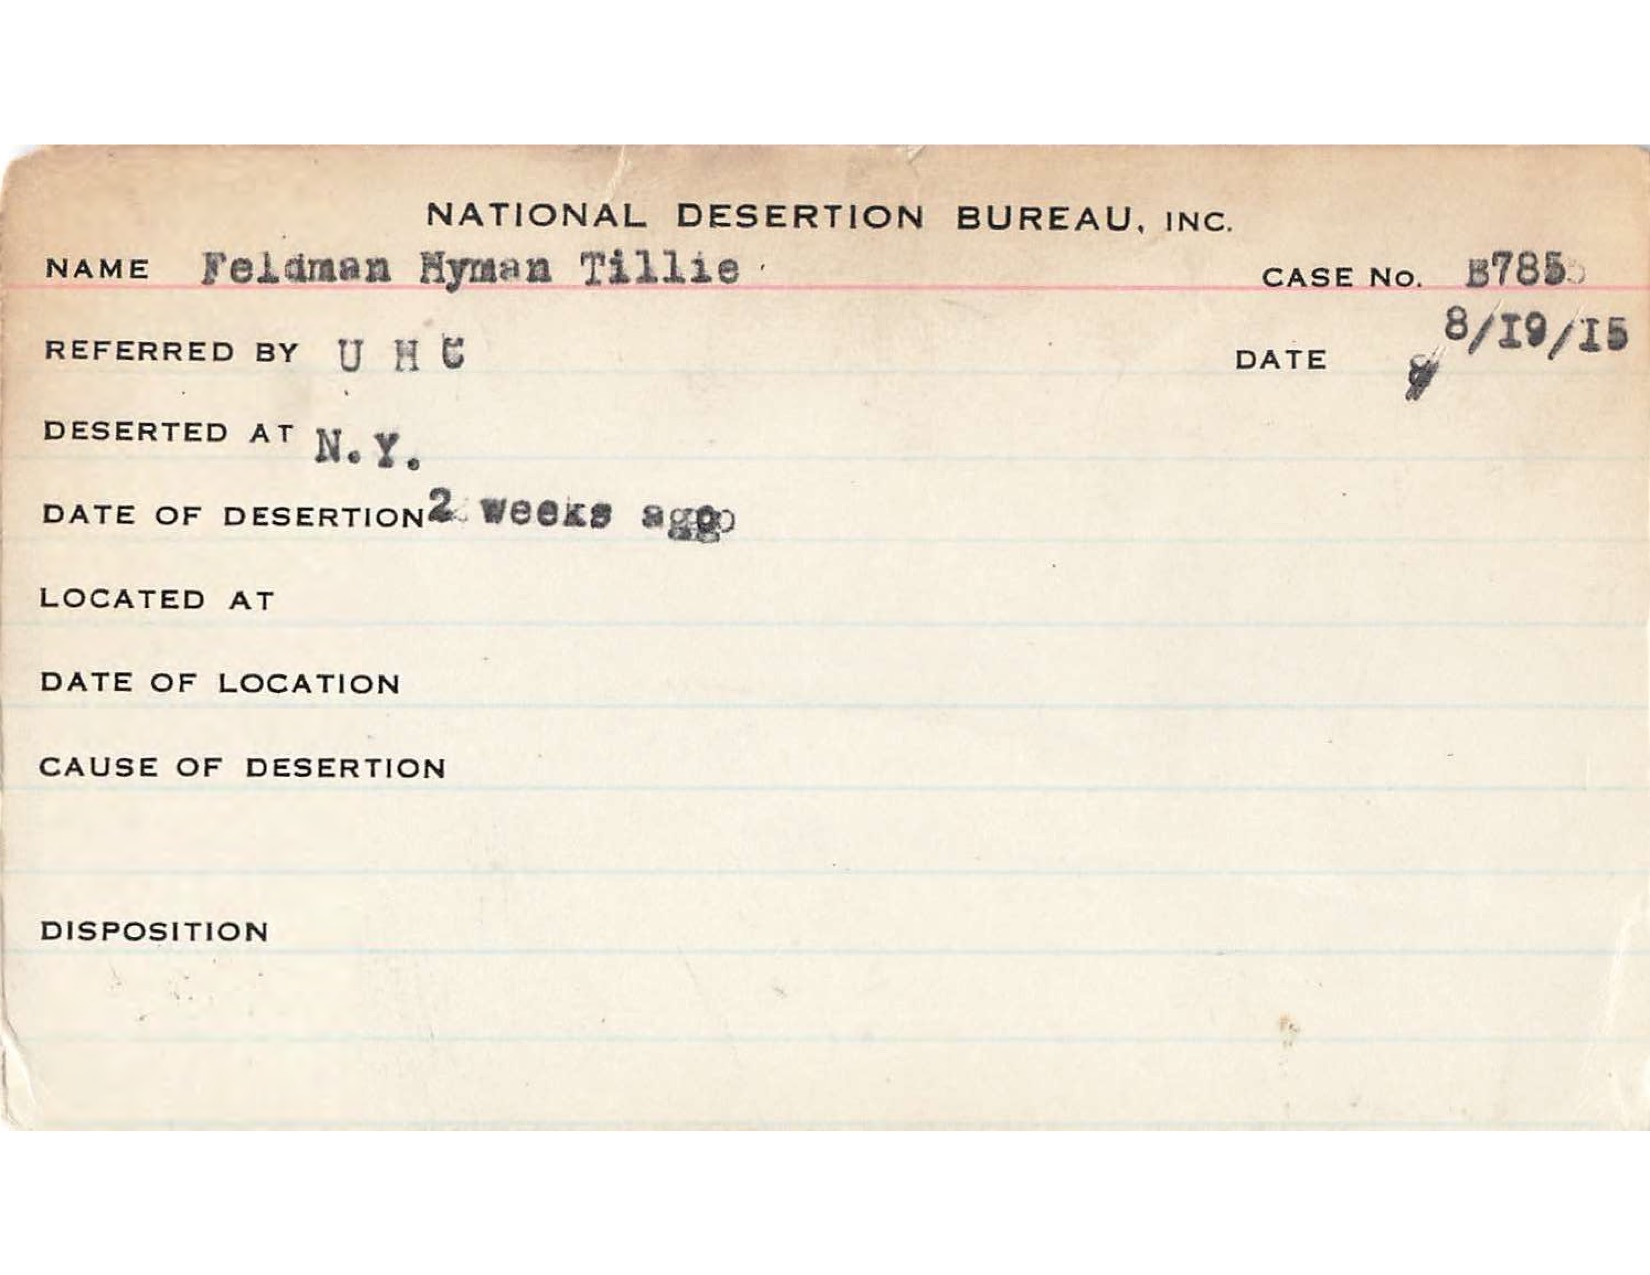 NATIONAL DESERTION BUREAU, INC.
NAME Feldman Hyman Tillie CASE No. B785
REFERRED BY U H C DATE 8/19/15
DESERTED AT N.Y.
DATE OF DESERTION 2 weeks ago
LOCATED AT
DATE OF LOCATION
CAUSE OF DESERTION
DISPOSITION